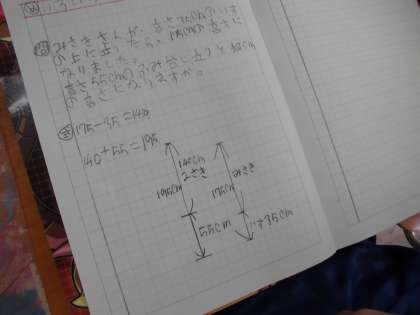 みさきさんが、高さ35cmのいす
の上に立ったら、175cmの高さに
なりました。
高さ55cmのふみ台に立つと、何cm
の高さになりますか。
175-35=140
140+55=195
140cm
みさき
195cm
55cm
みさき
175cm
いす35cm